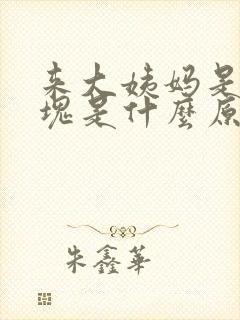 来大姨妈是
塊是什麼原
朱鑫華